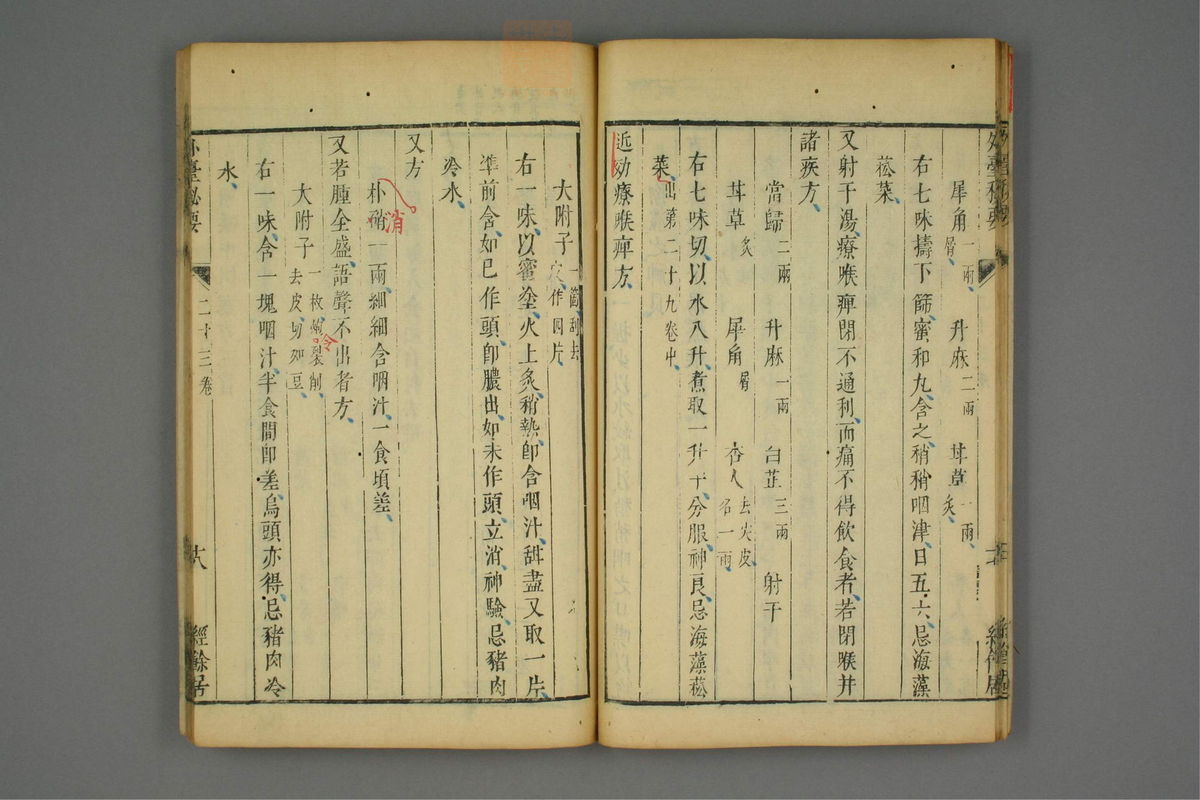 犀角屑一兩 升麻二兩 甘草一兩炙
右七味擣下篩蜜和丸含之稍稍咽津日五六忌海藻
菘菜
又射干湯療喉痺閉不通利而痛不得飲食者若閉喉并
諸疾方
當歸二兩 升麻一兩 白芷三兩 射干
甘草炙 犀角屑 杏人去尖皮各一兩
右七味切以水八升煮取一升半分服神良忌海藻菘
菜出第二十九卷中
近効療喉痺方
大附子一箇刮去皮作四片
右一味以蜜塗火上炙稍熱即含咽汁甜盡又取一片
準前含如已作頭即膿出如未作頭立消神驗忌豬肉
冷水
又方
朴硝一兩細細含咽汁一食頃差
消
又若腫全盛語聲不出者方
大附子一枚炮裂削去皮切如豆
令
右一味含一塊咽汁半食間即差烏頭亦得忌豬肉冷
水
外臺秘要 二十三卷 十八 經餘居